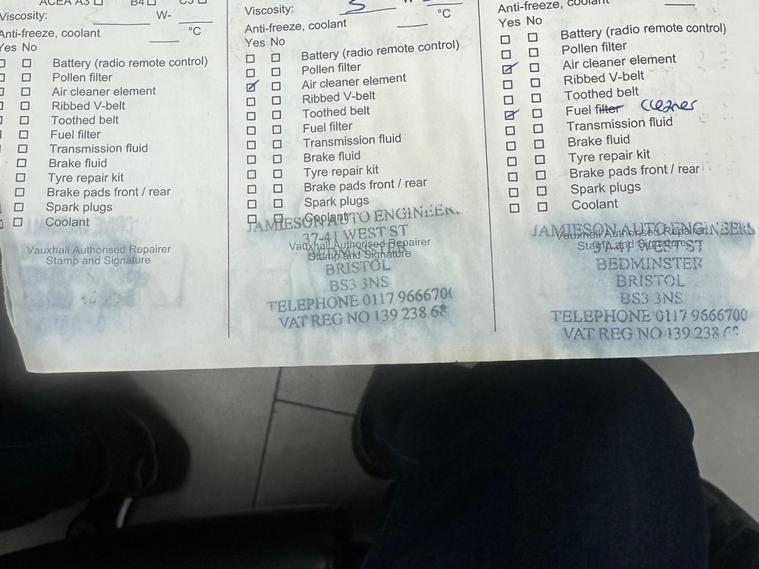 ACEA A3 B4 C3
Viscosity: W-
Anti-freeze, coolant °C
Yes No
Battery (radio remote control)
Pollen filter
Air cleaner element
Ribbed V-belt
Toothed belt
Fuel filter
Transmission fluid
Brake fluid
Tyre repair kit
Brake pads front / rear
Spark plugs
Coolant
Vauxhall Authorised Repairer
Stamp and Signature
Viscosity: 5 W
Anti-freeze, coolant °C
Yes No
Battery (radio remote control)
Pollen filter
Air cleaner element
Ribbed V-belt
Toothed belt
Fuel filter
Transmission fluid
Brake fluid
Tyre repair kit
Brake pads front / rear
Spark plugs
Coolant
JAMIESON AUTO ENGINEER
37-41 WEST ST
Vauxhall Authorised Repairer
Stamp and Signature
BRISTOL
BS3 3NS
TELEPHONE 0117 9666700
VAT REG NO 139 238 68
Anti-freeze, coolant °C
Yes No
Battery (radio remote control)
Pollen filter
Air cleaner element
Ribbed V-belt
Toothed belt
Fuel filter cleaner
Transmission fluid
Brake fluid
Tyre repair kit
Brake pads front / rear
Spark plugs
Coolant
JAMIESON AUTO ENGINEERS
Vauxhall Authorised Repairer
Stamp and Signature
37-41 WEST ST
BEDMINSTER
BRISTOL
BS3 3NS
TELEPHONE 0117 9666700
VAT REG NO 139 238